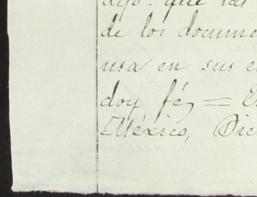 dijo: que las
de los docume
usa en sus e
doy fé, = E
México, Dic